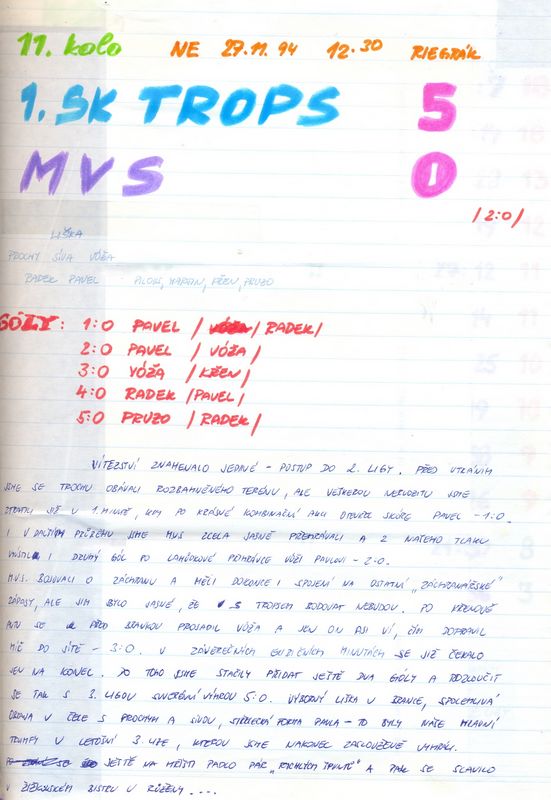 11. kolo NE 27.11.94 12.30 RIEGRÁK
1. SK TROPS 5
MVS 0
/2:0/
LIŠKA
PROCHY SÍVA VÓŽA
RADEK PAVEL ALOIS, MARTIN, KŘEN, PRUZO
GÓLY: 1:0 PAVEL / RADEK/
2:0 PAVEL / VÓŽA /
3:0 VÓŽA / KŘEN/
4:0 RADEK /PAVEL/
5:0 PRUZO /RADEK/
VÍTĚZSTVÍ ZNAMENALO JEDINÉ - POSTUP DO 2. LIGY. PŘED UTKÁNÍM
JSME SE TROCHU OBÁVALI ROZBAHNĚNÉHO TERÉNU, ALE VEŠKEROU NERVOZITU JSME
ZTRATILI JIŽ V 1. MINUTĚ, KDY PO KRÁSNÉ KOMBINAČNÍ AKCI OTEVŘEL SKÓRE PAVEL - 1:0.
I V DALŠÍM PRŮBĚHU JSME MVS ZCELA JASNĚ PŘEHRÁVALI A Z NAŠEHO TLAKU
I DRUHÝ GÓL PO LAHŮDKOVÉ PŘIHRÁVCE VÓŽI PAVLOVI - 2:0.
MVS. BOJOVALI O ZÁCHRANU A MĚLI DOKONCE I SPOJENÍ NA OSTATNÍ "ZÁCHRANÁŘSKÉ"
ZÁPASY, ALE JIM BYLO JASNÉ, ŽE S TROPSEM BODOVAT NEBUDOU. PO KŘENOVĚ
AUTU SE PŘED BRANKOU PROSADIL VÓŽA A JEN ON ASI VÍ, ČÍM DOPRAVIL
MÍČ DO SÍTĚ - 3:0. V ZÁVĚREČNÝCH MINUTÁCH SE JIŽ ČEKALO
JEN NA KONEC. DO TOHO JSME STAČILY PŘIDAT JEŠTĚ DVA GÓLY A ROZLOUČIT
SE TAK S 3. LIGOU SUVERÉNNÍ VÝHROU 5:0. VÝBORNÝ LIŠKA V BRANCE, SPOLEHLIVÁ
OBRANA V ČELE S PROCHYM A SÍVOU, STŘELECKÁ FORMA PAVLA - TO BYLY NAŠE HLAVNÍ
TRUMFY V LETOŠNÍ 3. LIZE, KTEROU JSME NAKONEC ZASLOUŽENĚ VYHRÁLI.
JEŠTĚ NA HŘIŠTI PADLO PÁR "RYCHLÝCH ŠPUNTŮ" A PAK SE SLAVILO
V ŽIŽKOVSKÉM BISTRU U RŮŽENY....